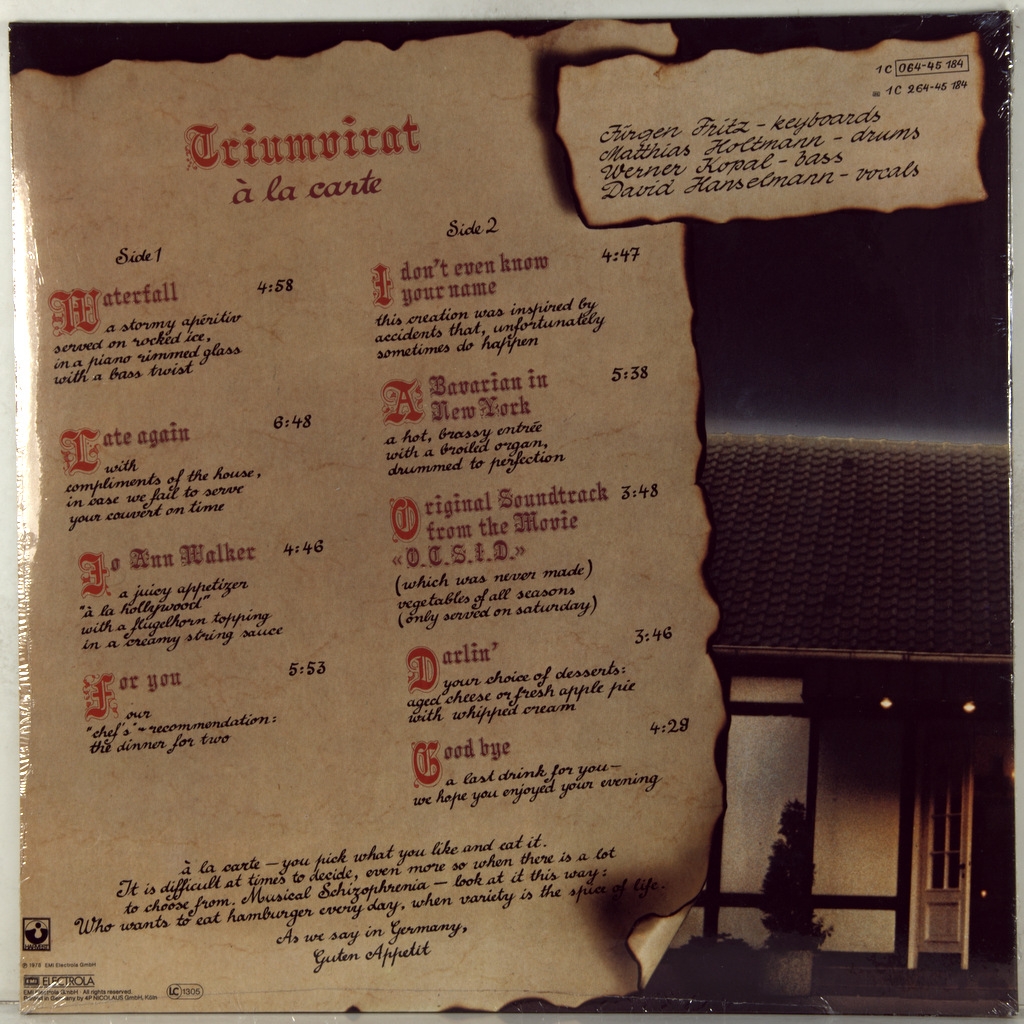 1C 064-45 184
1C 264-45 184
Jürgen Fritz – keyboards
Matthias Holtmann – drums
Werner Kopal – bass
David Hanselmann – vocals
Triumvirat
à la carte
Side 1
Waterfall 4:58
a stormy apéritiv
served on rocked ice,
in a piano rimmed glass
with a bass twist
Late again 6:48
with
compliments of the house,
in case we fail to serve
your couvert on time
Jo Ann Walker 4:46
a juicy appetizer
"à la hollywood"
with a flugelhorn topping
in a creamy string sauce
For you 5:53
our
"chef's"-recommendation:
the dinner for two
Side 2
I don't even know 4:47
your name
this creation was inspired by
accidents that, unfortunately
sometimes do happen
A Bavarian in 5:38
New York
a hot, brassy entrée
with a broiled organ,
drummed to perfection
Original Soundtrack 3:48
from the Movie
«O.T.S.I.D.»
(which was never made)
vegetables of all seasons
(only served on saturday)
Darlin' 3:46
your choice of desserts:
aged cheese or fresh apple pie
with whipped cream
Good bye 4:29
a last drink for you –
we hope you enjoyed your evening
à la carte – you pick what you like and eat it.
It is difficult at times to decide, even more so when there is a lot
to choose from. Musical Schizophrenia – look at it this way:
Who wants to eat hamburger every day, when variety is the spice of life.
As we say in Germany,
Guten Appetit
HARVEST
℗ 1978 EMI Electrola GmbH
EMI ELECTROLA
EMI Electrola GmbH · All rights reserved.
Printed in Germany by 4P NICOLAUS GmbH, Köln
LC 1305